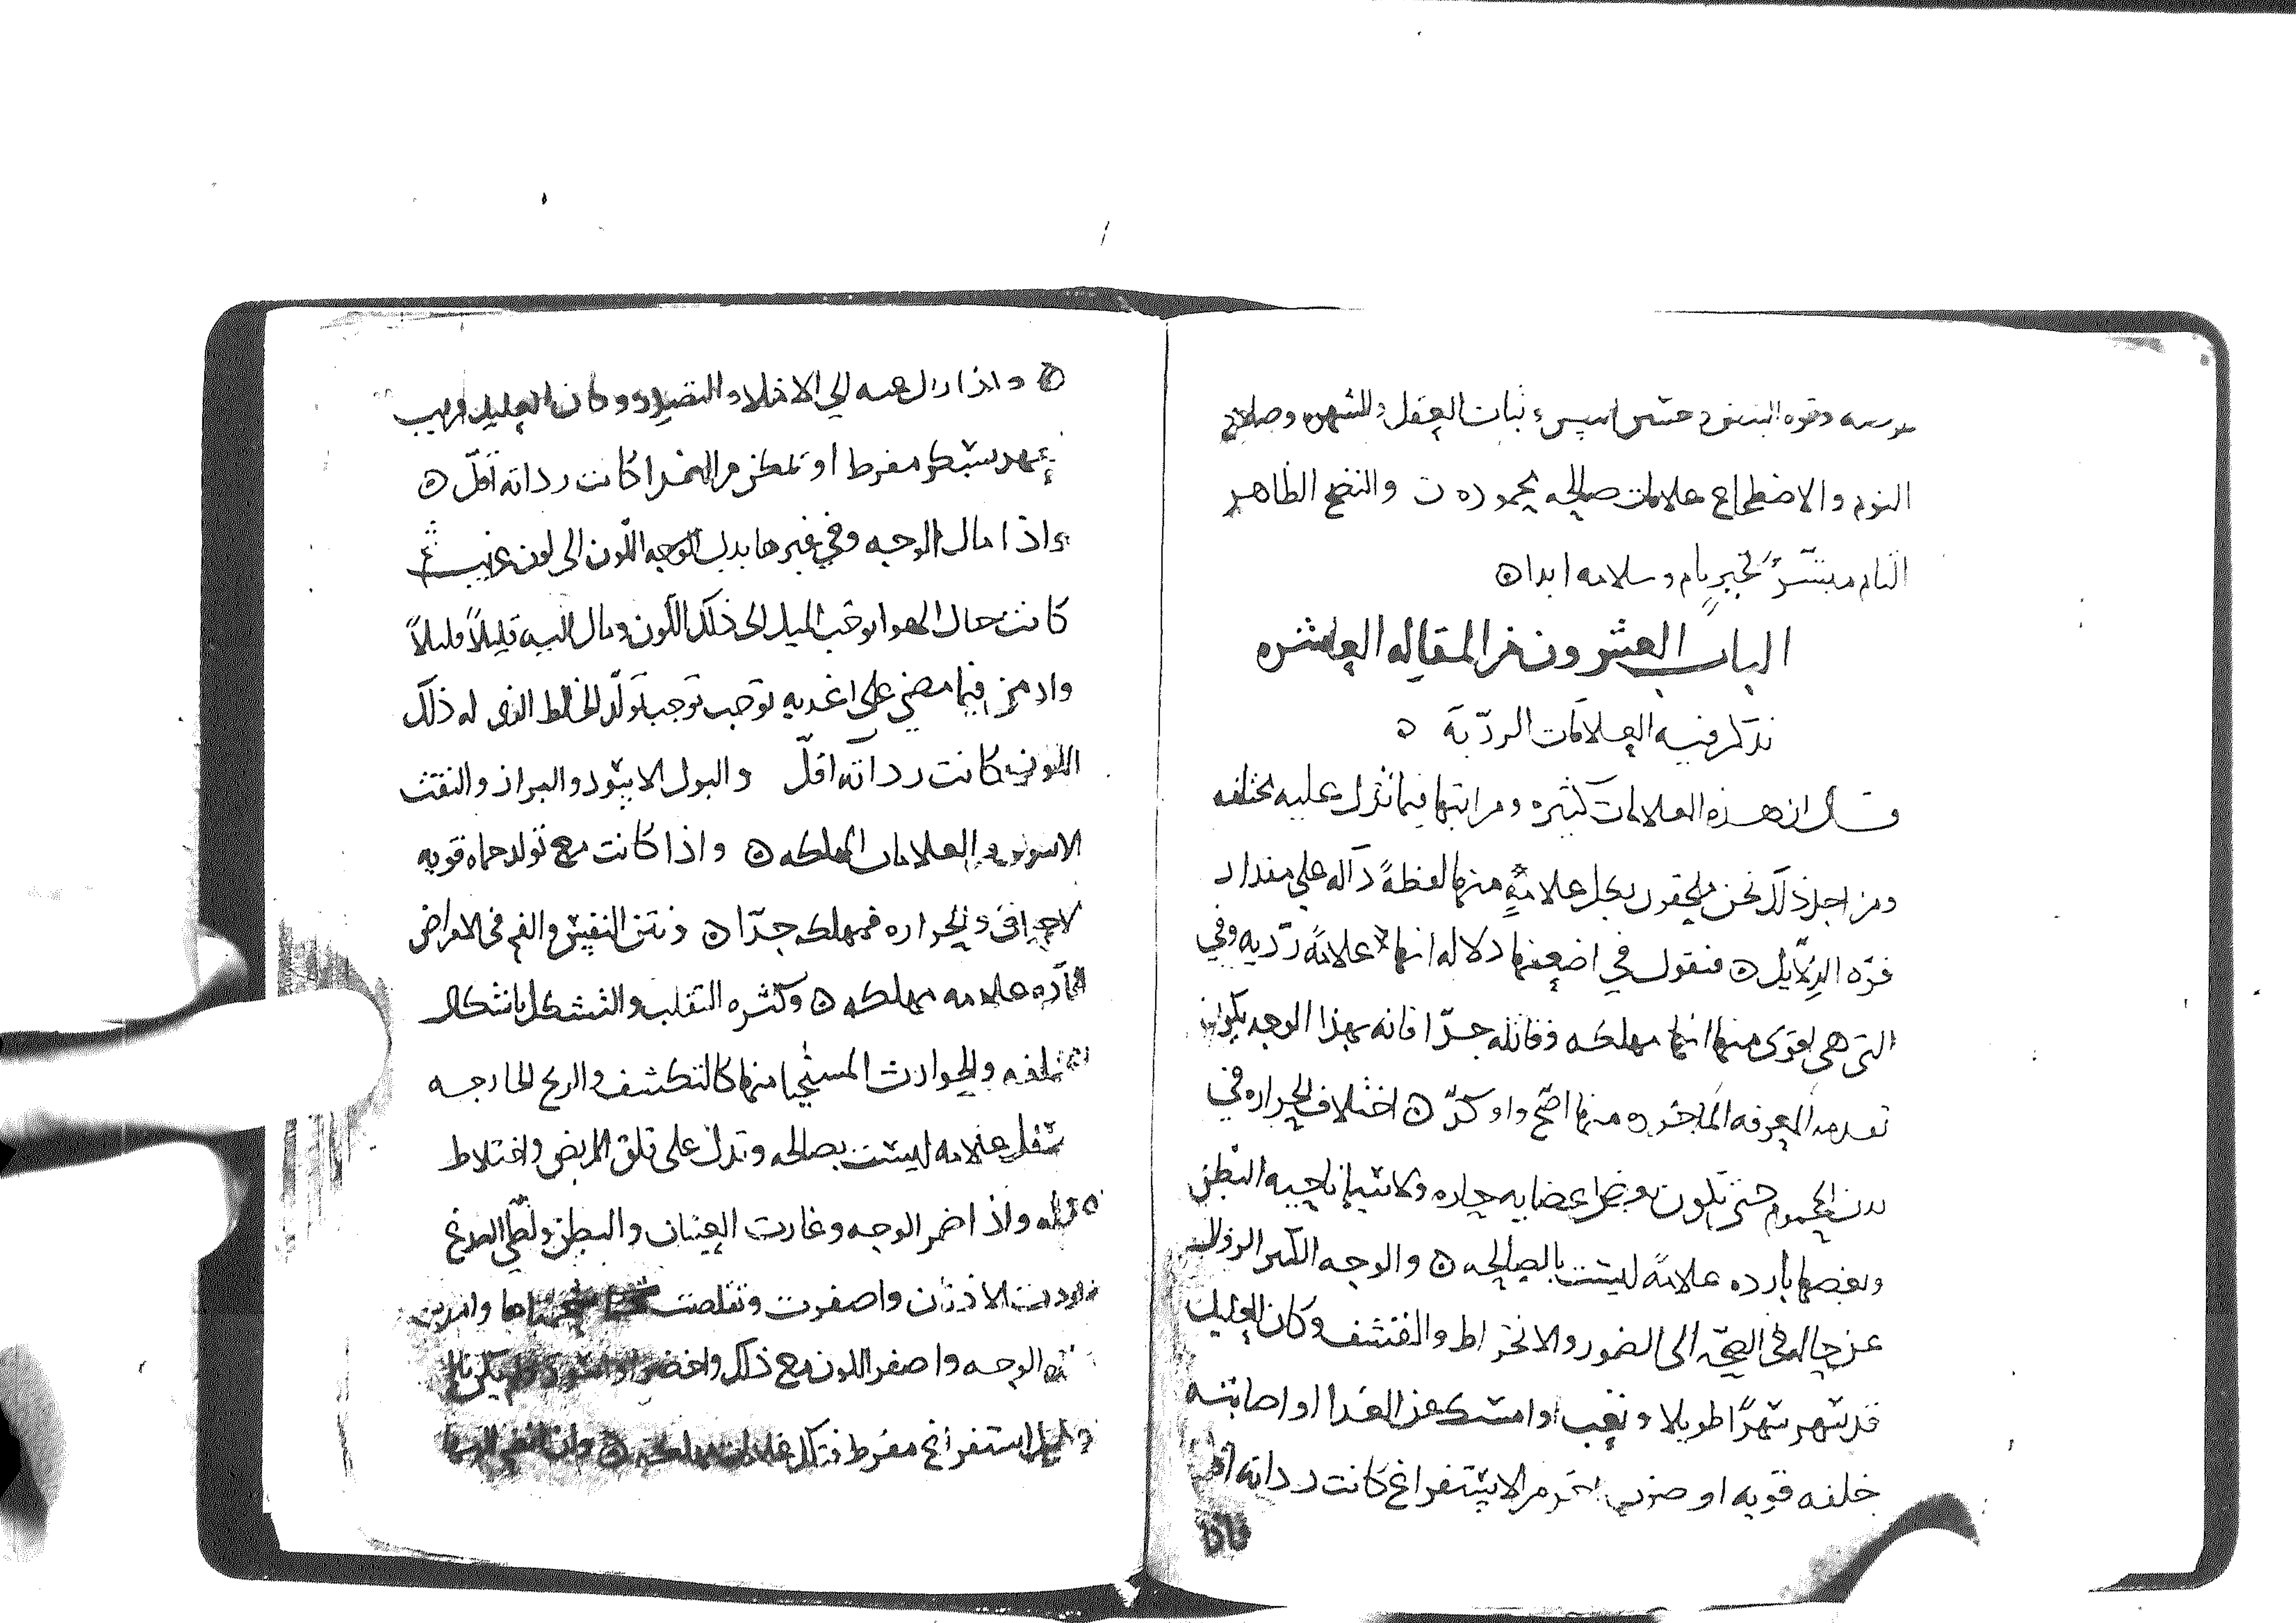 وقوه النبض وحسن ثبات العقل والشهوه وصلاح
النوم والاضطجاع علامات صالحه محموده ن والنضج الظاهر
التام مبشرٌ بخيرٍ تام وسلامه ابدا ن
الباب العشرون من المقاله العاشره
نذكر فيه العلامات الرديّة ن
قال ان هذه العلامات كثيره ومراتبها فيما تدل عليه مختلفه
ومن اجل ذلك نحن ملحقون بكل علامةٍ منها لفظةً دآله علي مقدار
قوّه الدلآيل ن فنقول في اضعفها دلاله انها علامةً رديه وفي
التى هى اقوى منها انها مهلكه وقاتله جدّا فانه بهذا الوجه يكون
تقدمه المعرفه الماخوده منها اصّح واوكدّ ن اختلاف الحراره في
بدن المحموم حتى تكون بعض اعضايه حاره ولا سيما ناحيه البطن
وبعضها بارده علامةً ليست بالصالحه ن والوجه الكثير الزوال
عن حاله في الصحّه الى الضمور والانخراط والقشف وكان العليل
قد سهر سهرًا طويلا وتعب او امسك عن الغدا او اصابته
خلفه قويه او ضرب اخر من الاستفراغ كانت رداته اقل
فان
ن واذا زال عنه الي الامتلا و وكان العليل قريب
عهد بسكر مفرط او تمكن من الغدا كانت رداته اقلّ ن
واذا مال الوجه وفي غيرها بدل الوجه اللّون الى لون غريب
كانت حال الهوا توجب الميل الى ذلك اللّون ومال اليه قليلاً قليلاً
وادمن فيما مضي على اغديه توجب توجب تولّد الخلط الذى له ذلك
اللون كانت رداته اقلّ والبول الاسود والبراز والنفث
الاسود من العلامات المهلكه ن واذا كانت مع تولد حماه قويه
الحراره فمهلكه جدّا ن ونتن النفس والفم فى الامراض
الحآدّه علامه مهلكه ن وكثره التقلب والتشكل باشكال
مختلفه والحوادث المستحيا منها كالتكشف والريح الخارجه
من سفل علامه ليست بصالحه وتدل على قلق المريض واختلاط
عقله ن واذا ضمر الوجه وغارت العينان والبطن ولطي الصدغ
وبردت الاذنان واصفرت وتقلصت شحمتاها وامتدت
جلده الوجه واصفر اللون مع ذلك واخضر او اسود ولم يكن ناله
استفراغ مفرط فتلك علامات مهلكه ن وان